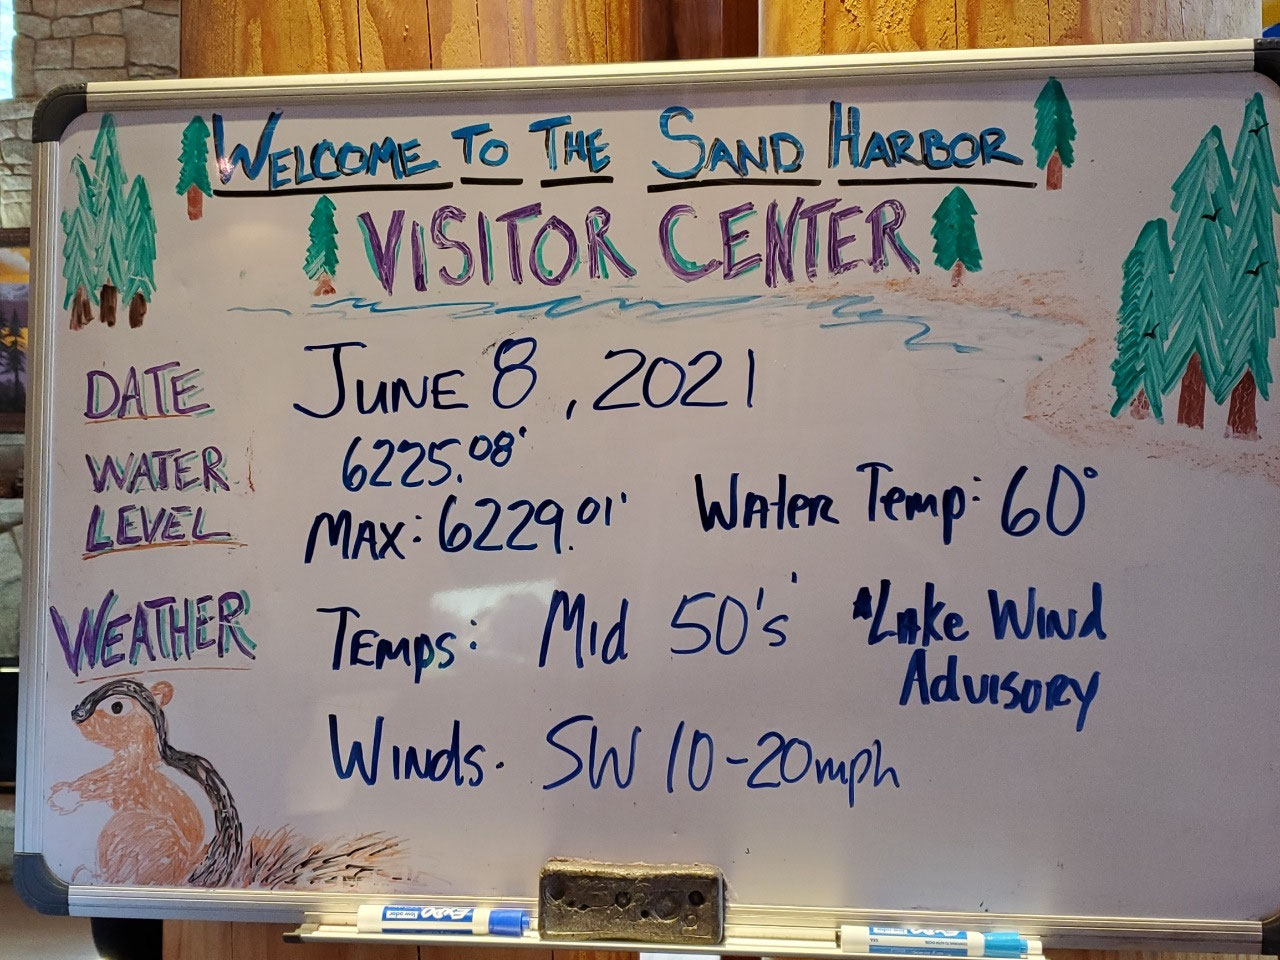 WELCOME TO THE SAND HARBOR
VISITOR CENTER
DATE JUNE 8, 2021
WATER LEVEL
6225.08'
MAX: 6229.01'
Water Temp: 60°
WEATHER
TEMPS: Mid 50's'
*Lake Wind
Advisory
Winds. SW 10-20mph
EXPO
low odor